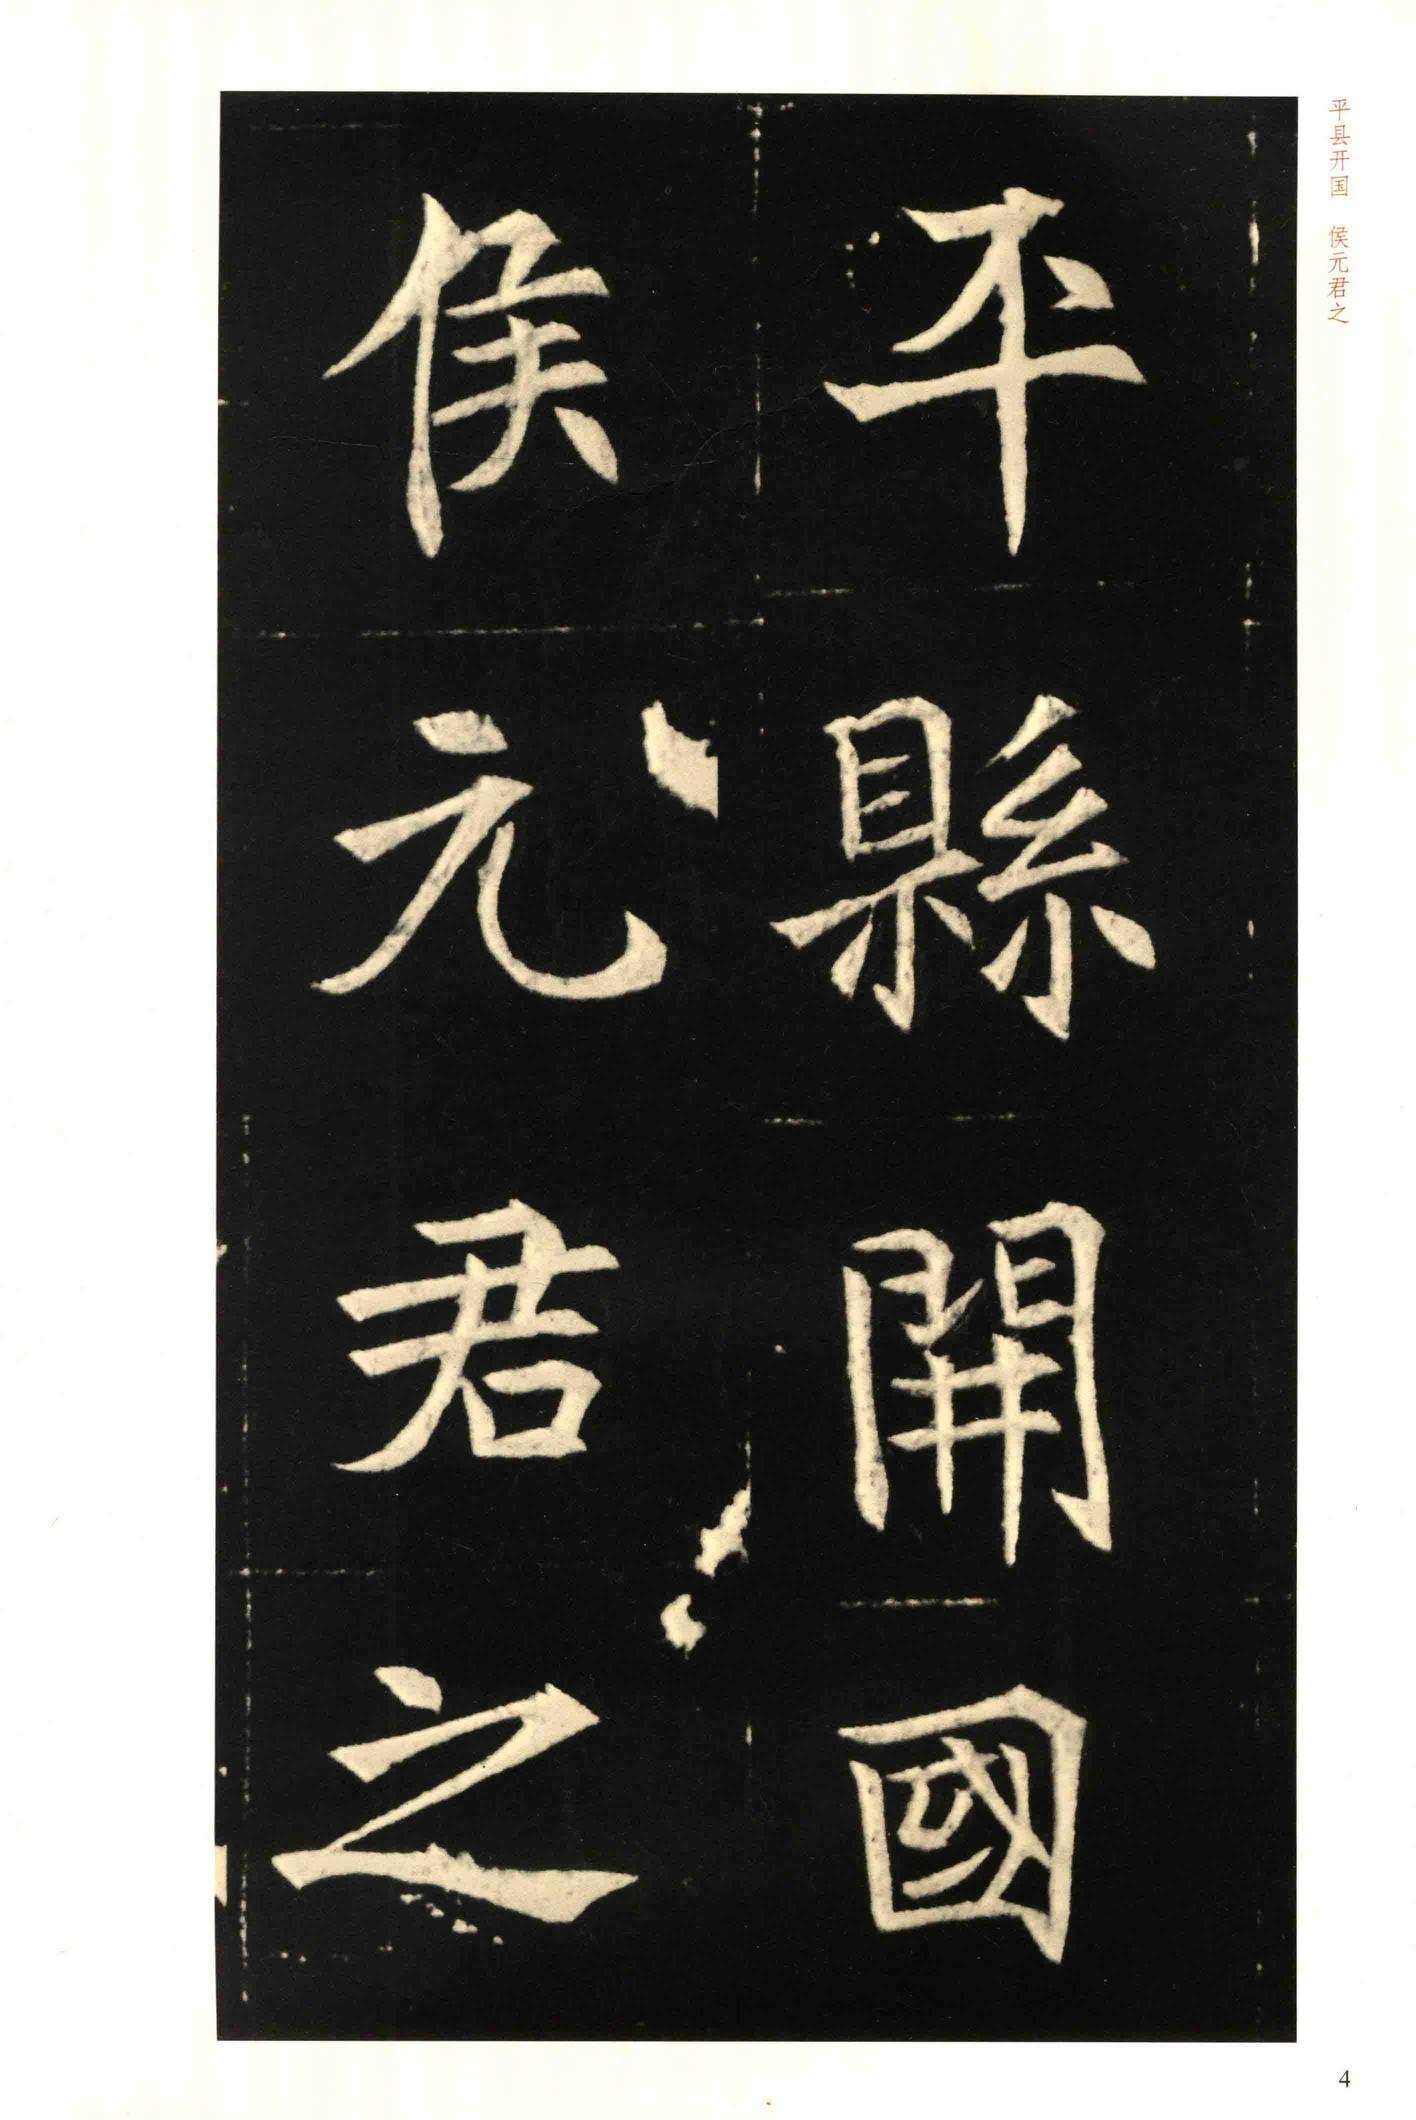 平縣開國
侯元君之
平县开国 侯元君之
4